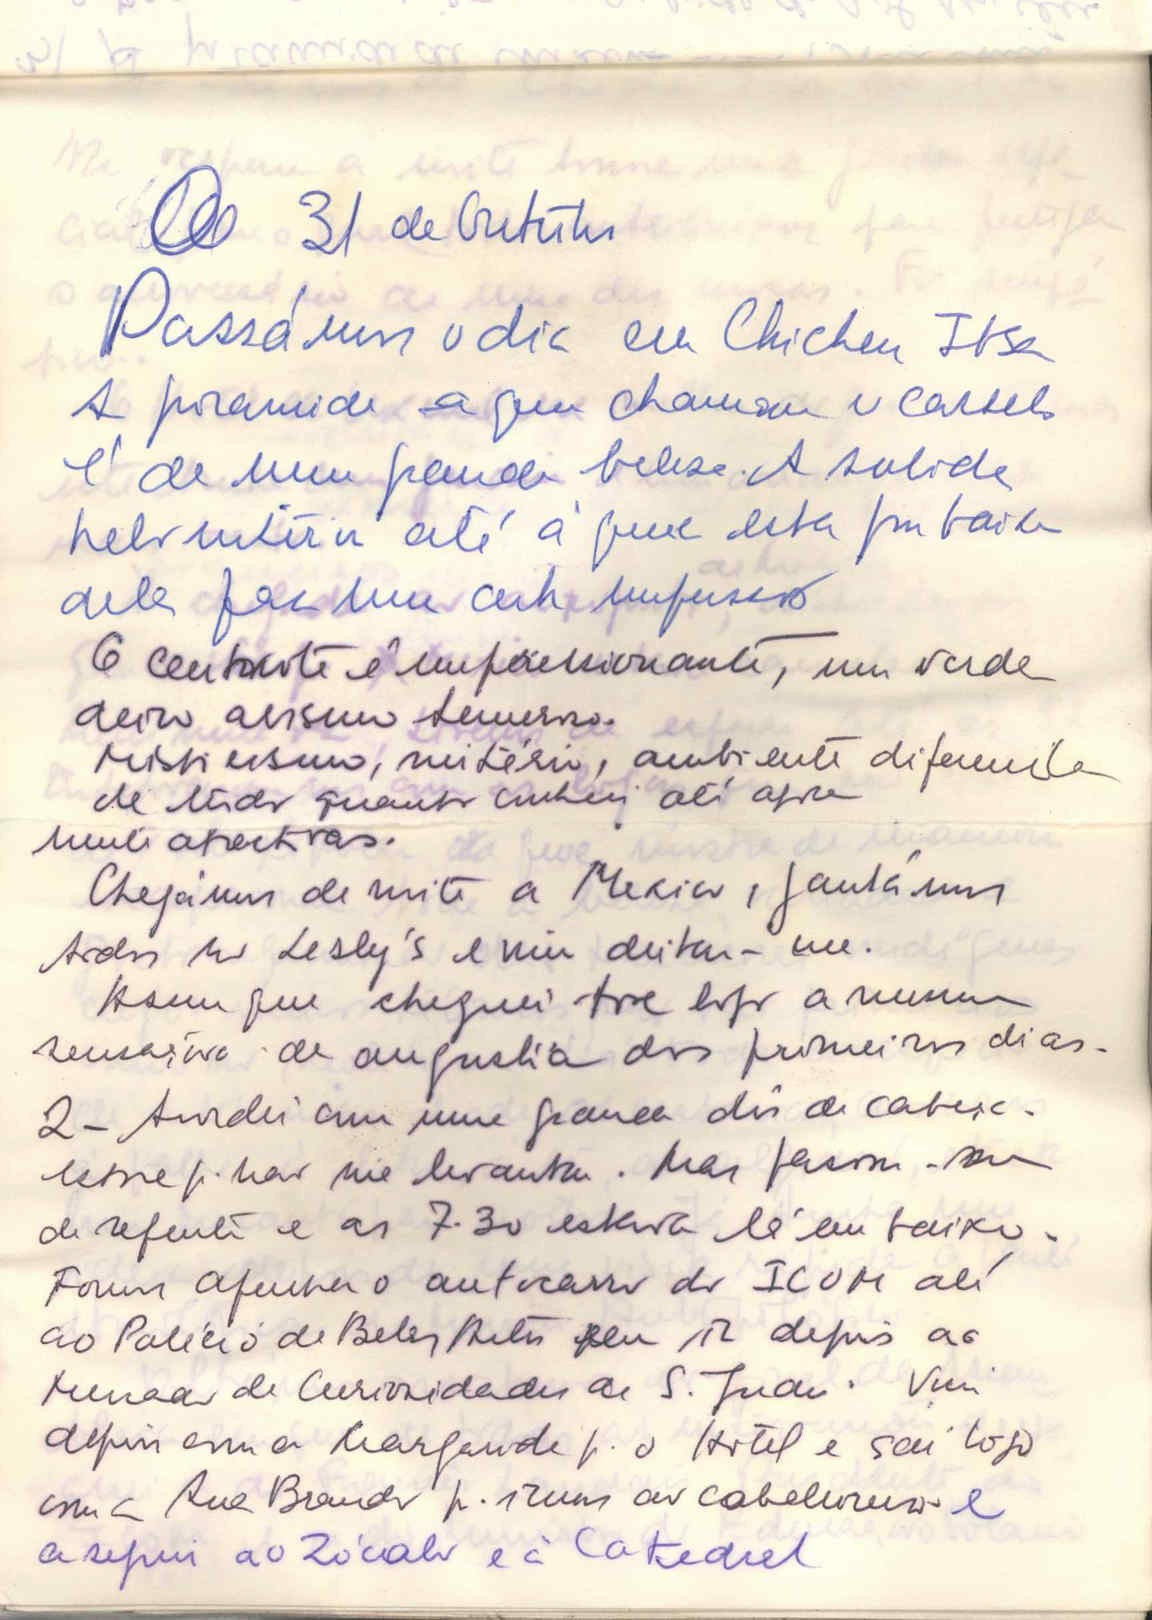 31 de Outubro
Passámos o dia em Chichen Itsa
A piramide a que chamam o Castelo
é de uma grande beleza. A subida
pelo interior até à que está por baixo
dela faz uma certa impressão
O cenote é impressionante, um verda
deiro abismo temeroso.
Misticismo, mistério, ambiente diferente
de tudo quanto conheci até agora
Chegámos de noite a Mexico, jantámos
todos no Lesly's e vim deitar-me.
Assim que cheguei tive logo a mesma
sensação de angustia dos primeiros dias.
2 - Acordei com uma grande dôr de cabeça.
Estive p. não me levantar. Mas passou-me
de repente e as 7.30 estava lá em baixo.
Fomos apanhar o autocarro do ICOM até
ao Palácio de Belas Artes para ir depois ao
Mercado de Curiosidades de S. Juan. Vim
depois com a Margarida p. o Hotel e saí logo
com a Ana Brandr p. irmos ao cabeleireiro e
a seguir ao Zócalo e à Catedral